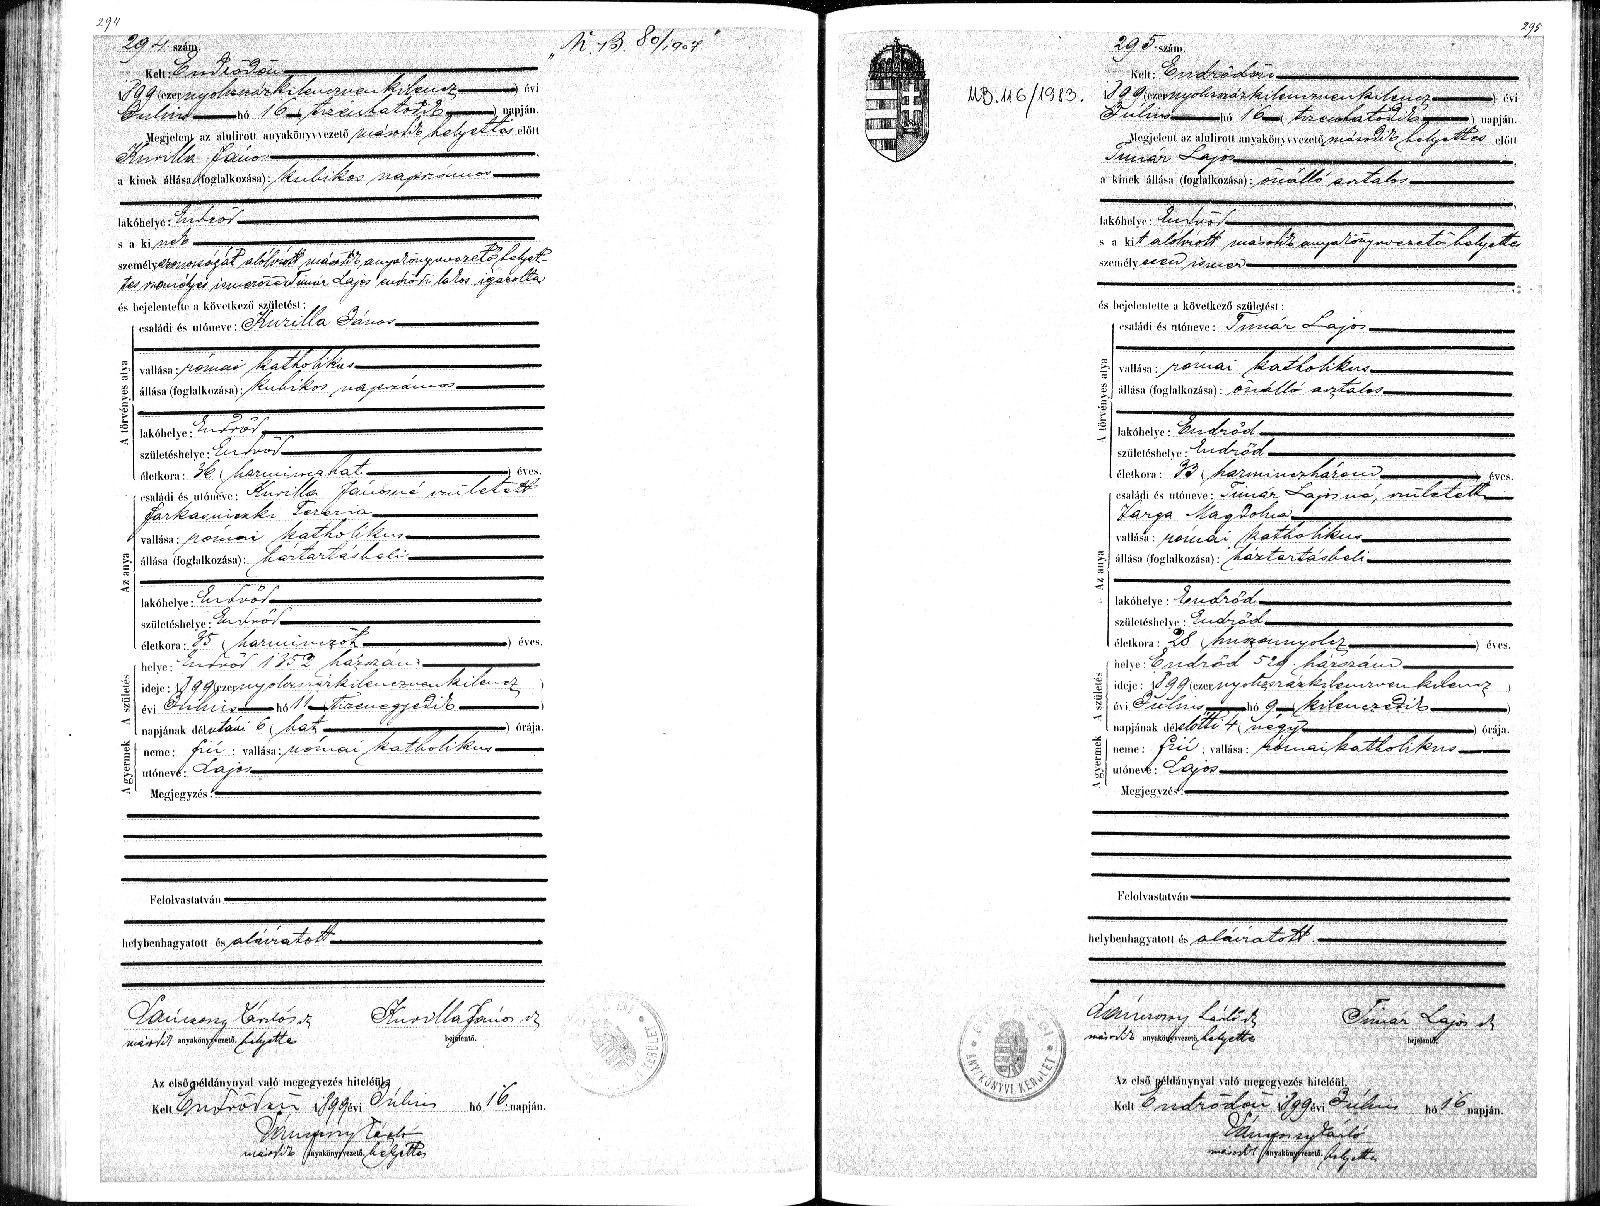 294
294 szám.
"N. B. 80/1907"
Kelt: Endrődön
1899 (ezer nyolcszázkilenczvenkilencz ) évi
Julius hó 16 ( tizenhatodik ) napján.
Megjelent az alulirott anyakönyvvezető második helyettes előtt
Kurilla János
a kinek állása (foglalkozása): kubikos napszámos
lakóhelye: Endrőd
s a ki nek
személyazonosságát alólirott második anyakönyvvezető helyet
tes személyes ismerőse Timár Lajos endrődi lakos igazolta
és bejelentette a következő születést:
A törvényes atya
családi és utóneve: Kurilla János
vallása: római katholikus
állása (foglalkozása): kubikos napszámos
lakóhelye: Endrőd
születéshelye: Endrőd
életkora: 36 ( harminczhat ) éves.
Az anya
családi és utóneve: Kurilla Jánosné született
Farkasinszki Terézia
vallása: római katholikus
állása (foglalkozása): háztartásbeli
lakóhelye: Endrőd
születéshelye: Endrőd
életkora: 35 ( harminczöt ) éves.
A születés
helye: Endrőd 1352 házszám
ideje: 1899 (ezer nyolcszázkilenczvenkilencz )
évi Julius hó 11 ( tizenegyedik )
napjának délutáni 6 ( hat ) órája.
A gyermek
neme: fiú ; vallása: római katholikus
utóneve: Lajos
Megjegyzés:
Felolvastatván
helybenhagyatott és aláiratott
Kurilla János
második anyakönyvvezető. helyettes
bejelentő.
Az első példánynyal való megegyezés hiteléül.
Kelt Endrődön 1899 évi Julius hó 16 napján.
második anyakönyvvezető. helyettes
295
295 szám.
MB. 116/1983.
Kelt: Endrődön
1899 (ezer nyolcszázkilenczvenkilencz ) évi
Julius hó 16 ( tizenhatodik ) napján.
Megjelent az alulirott anyakönyvvezető második helyettes előtt
Timár Lajos
a kinek állása (foglalkozása): önálló asztalos
lakóhelye: Endrőd
s a kit alólirott második anyakönyvvezető helyettes
személyesen ismer
és bejelentette a következő születést:
A törvényes atya
családi és utóneve: Timár Lajos
vallása: római katholikus
állása (foglalkozása): önálló asztalos
lakóhelye: Endrőd
születéshelye: Endrőd
életkora: 33 ( harminczhárom ) éves.
Az anya
családi és utóneve: Timár Lajosné, született
Varga Magdolna
vallása: római katholikus
állása (foglalkozása): háztartásbeli
lakóhelye: Endrőd
születéshelye: Endrőd
életkora: 28 ( huszonnyolcz ) éves.
A születés
helye: Endrőd házszám
ideje: 1899 (ezer nyolcszázkilenczvenkilencz )
évi Julius hó 9 ( kilenczedik )
napjának délelőtti 4 ( négy ) órája.
A gyermek
neme: fiú ; vallása: római katholikus
utóneve: Lajos
Megjegyzés:
Felolvastatván
helybenhagyatott és aláiratott.
Timár Lajos
második anyakönyvvezető. helyettes
bejelentő.
ANYAKÖNYVI KERÜLET
Az első példánynyal való megegyezés hiteléül.
Kelt Endrődön 1899 évi Julius hó 16 napján.
második anyakönyvvezető. helyettes